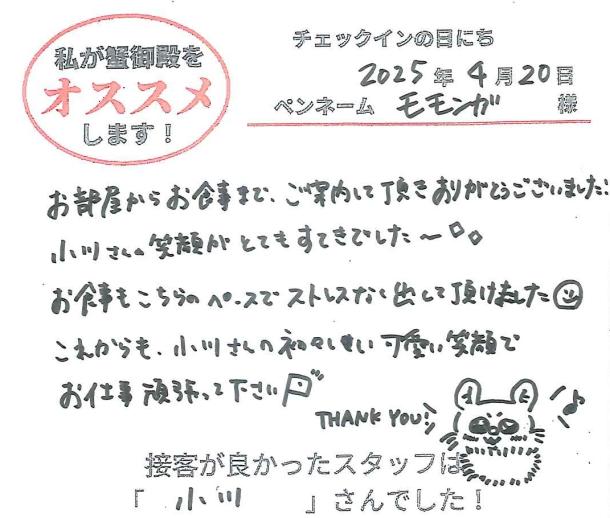 私が蟹御殿を
オススメ
します！
チェックインの日にち
2025年4月20日
ペンネーム モモンガ 様
お部屋からお食事まで、ご案内して頂きありがとうございました!!
小川さんの笑顔がとてもすてきでした〜
お食事もこちらのペースでストレスなく出して頂けました
これからも、小川さんの初々しい可愛い笑顔で
お仕事頑張って下さい
THANK YOU!!
接客が良かったスタッフは
「 小川 」さんでした！